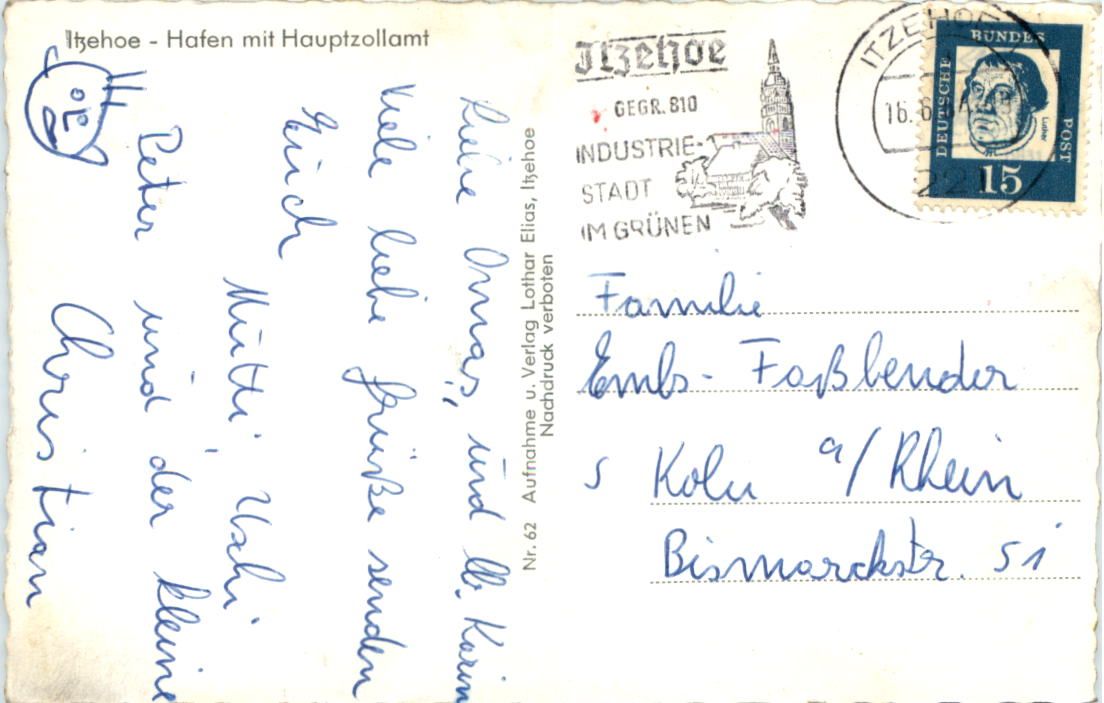 Itzehoe - Hafen mit Hauptzollamt
Liebe Omas, und lb. Karin
Viele liebe Grüße senden
Euch
Mutti, Uschi
Peter und der kleine
Christian
Nr. 62 Aufnahme u. Verlag Lothar Elias, Itzehoe
Nachdruck verboten
Itzehoe
GEGR. 810
INDUSTRIE-
STADT
IM GRÜNEN
ITZEHOE
16.6
22
BUNDES
DEUTSCHE
POST
Luther
15
Familie
Embs- Faßbender
5 Köln a/Rhein
Bismarckstr. 51